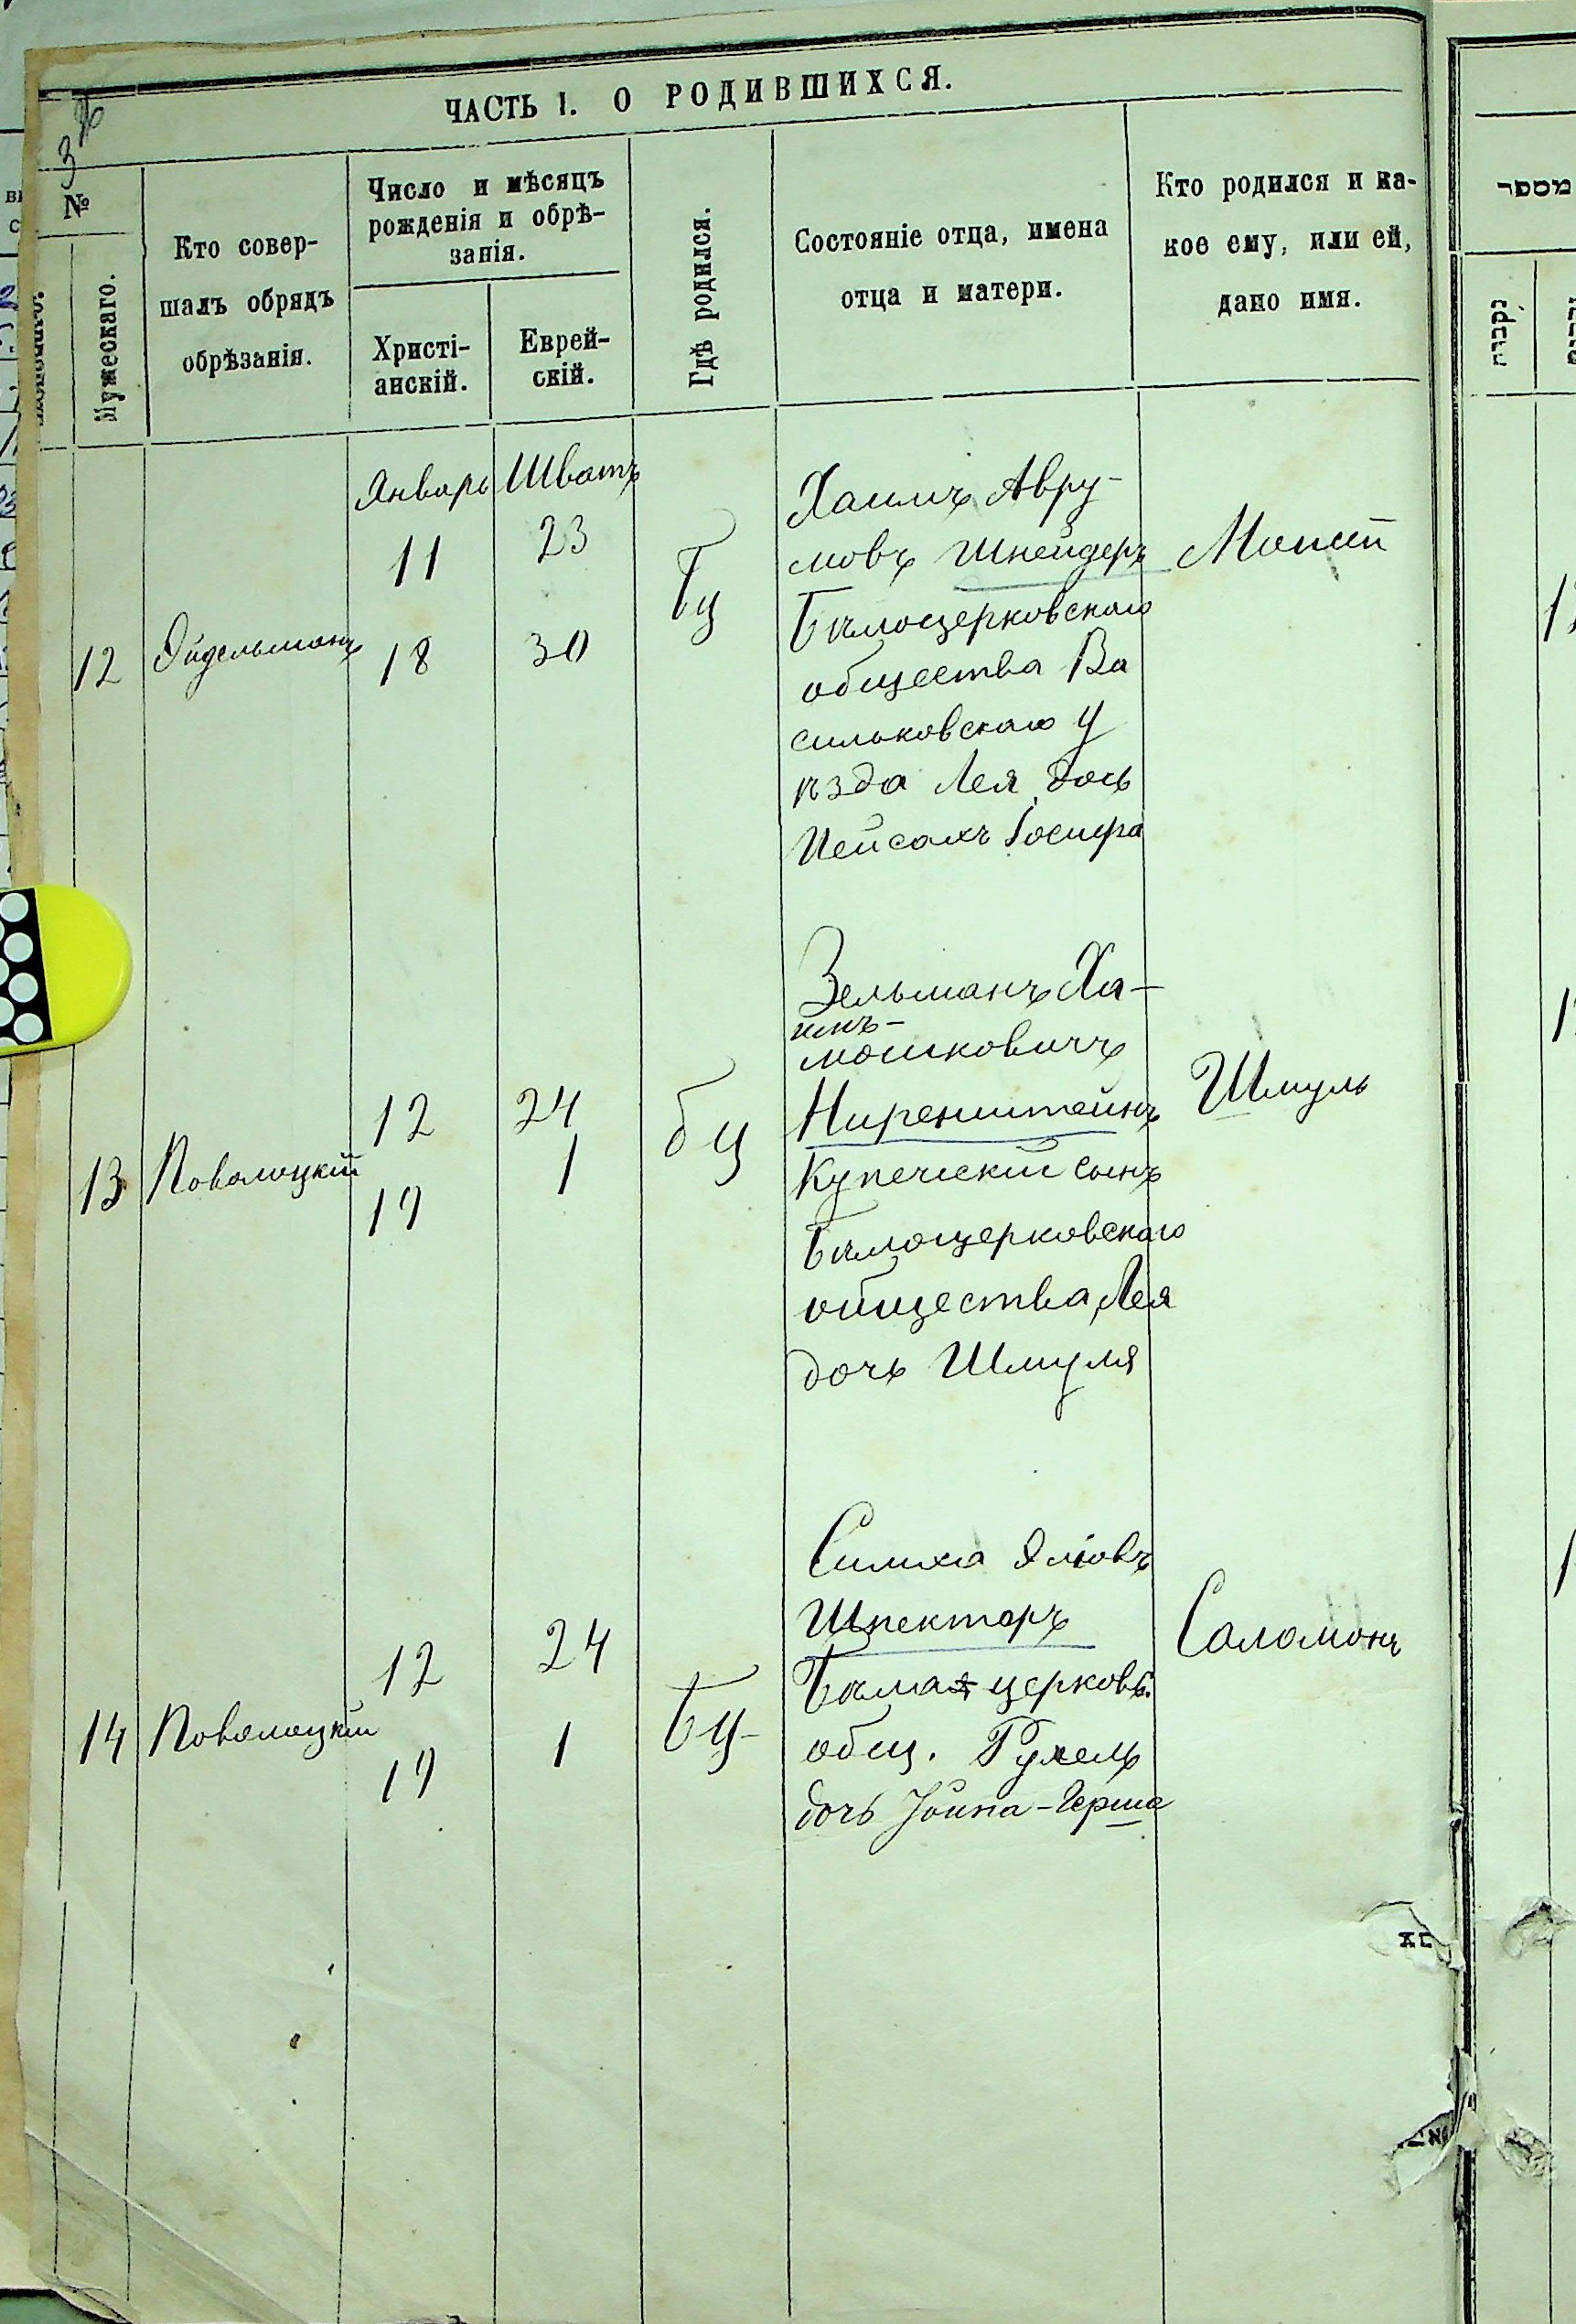 ЧАСТЬ I. О РОДИВШИХСЯ.
3
№
Мужескаго.
Кто совер-
шалъ обрядъ
обрѣзанія.
Число и мѣсяцъ
рожденія и обрѣ-
занія.
Христі-
анскій.
Еврей-
скій.
Гдѣ родился.
Состояніе отца, имена
отца и матери.
Кто родился и ка-
кое ему, или ей,
дано имя.
מספר
נקבות
12
Эйдельманъ
Январь
11
18
Шватъ
23
30
БЦ
Хаимъ Авру-
мовъ Шнейдеръ
Бѣлоцерковскаго
общества Ва
сильковскаго У
ѣзда Лея дочь
Пейсахъ Іосифа
Мошій
13
Поволоцкій
12
19
24
1
бЦ
Зельманъ Ха-
имъ-
мошковичъ
Ниренштейнъ
Купеческій сынъ
Бѣлоцерковскаго
общества, Лея
дочь Шмуля
Шмуль
14
Поволоцкій
12
19
24
1
БЦ-
Симха Эліовъ
Шпекторъ
Бѣла церковс.
общ. Рухель
дочь Іойна-Герша
Саломонъ